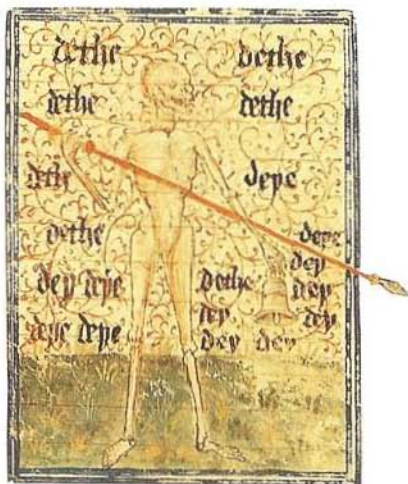 dethe dethe
dethe dethe
deth deye
dethe deye
dey
dey deye dethe dey
dey dey
deye deye dey dey